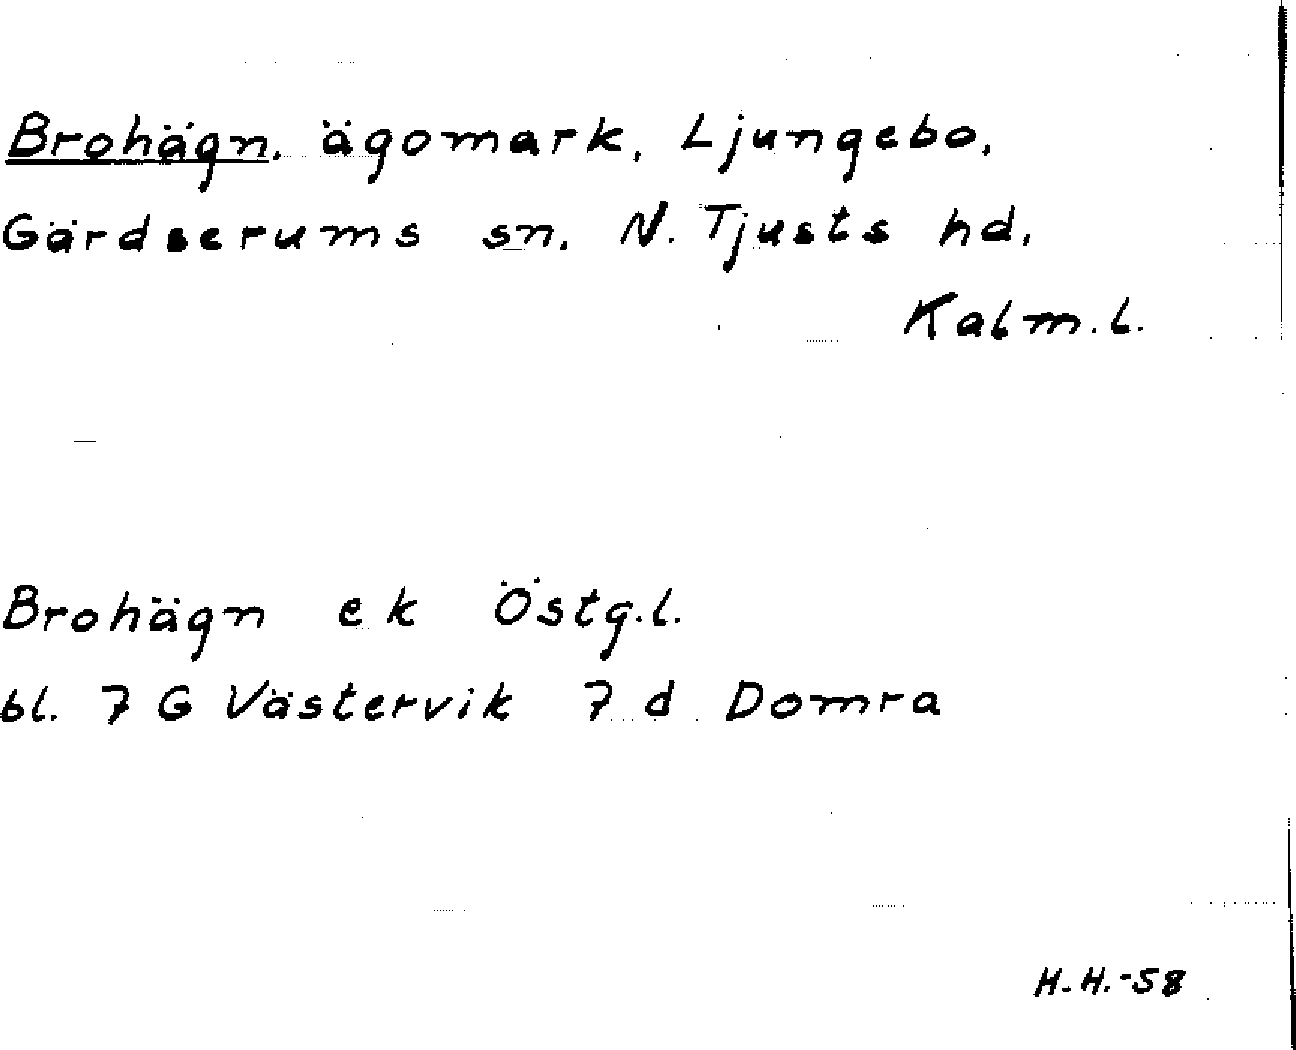 Brohägn, ägomark, Ljungebo,
Gärdserums sn, N. Tjusts hd,
Kalm.l.
Brohägn ek Östg.l.
bl. 7 G Västervik 7 d Domra
H.H.-58